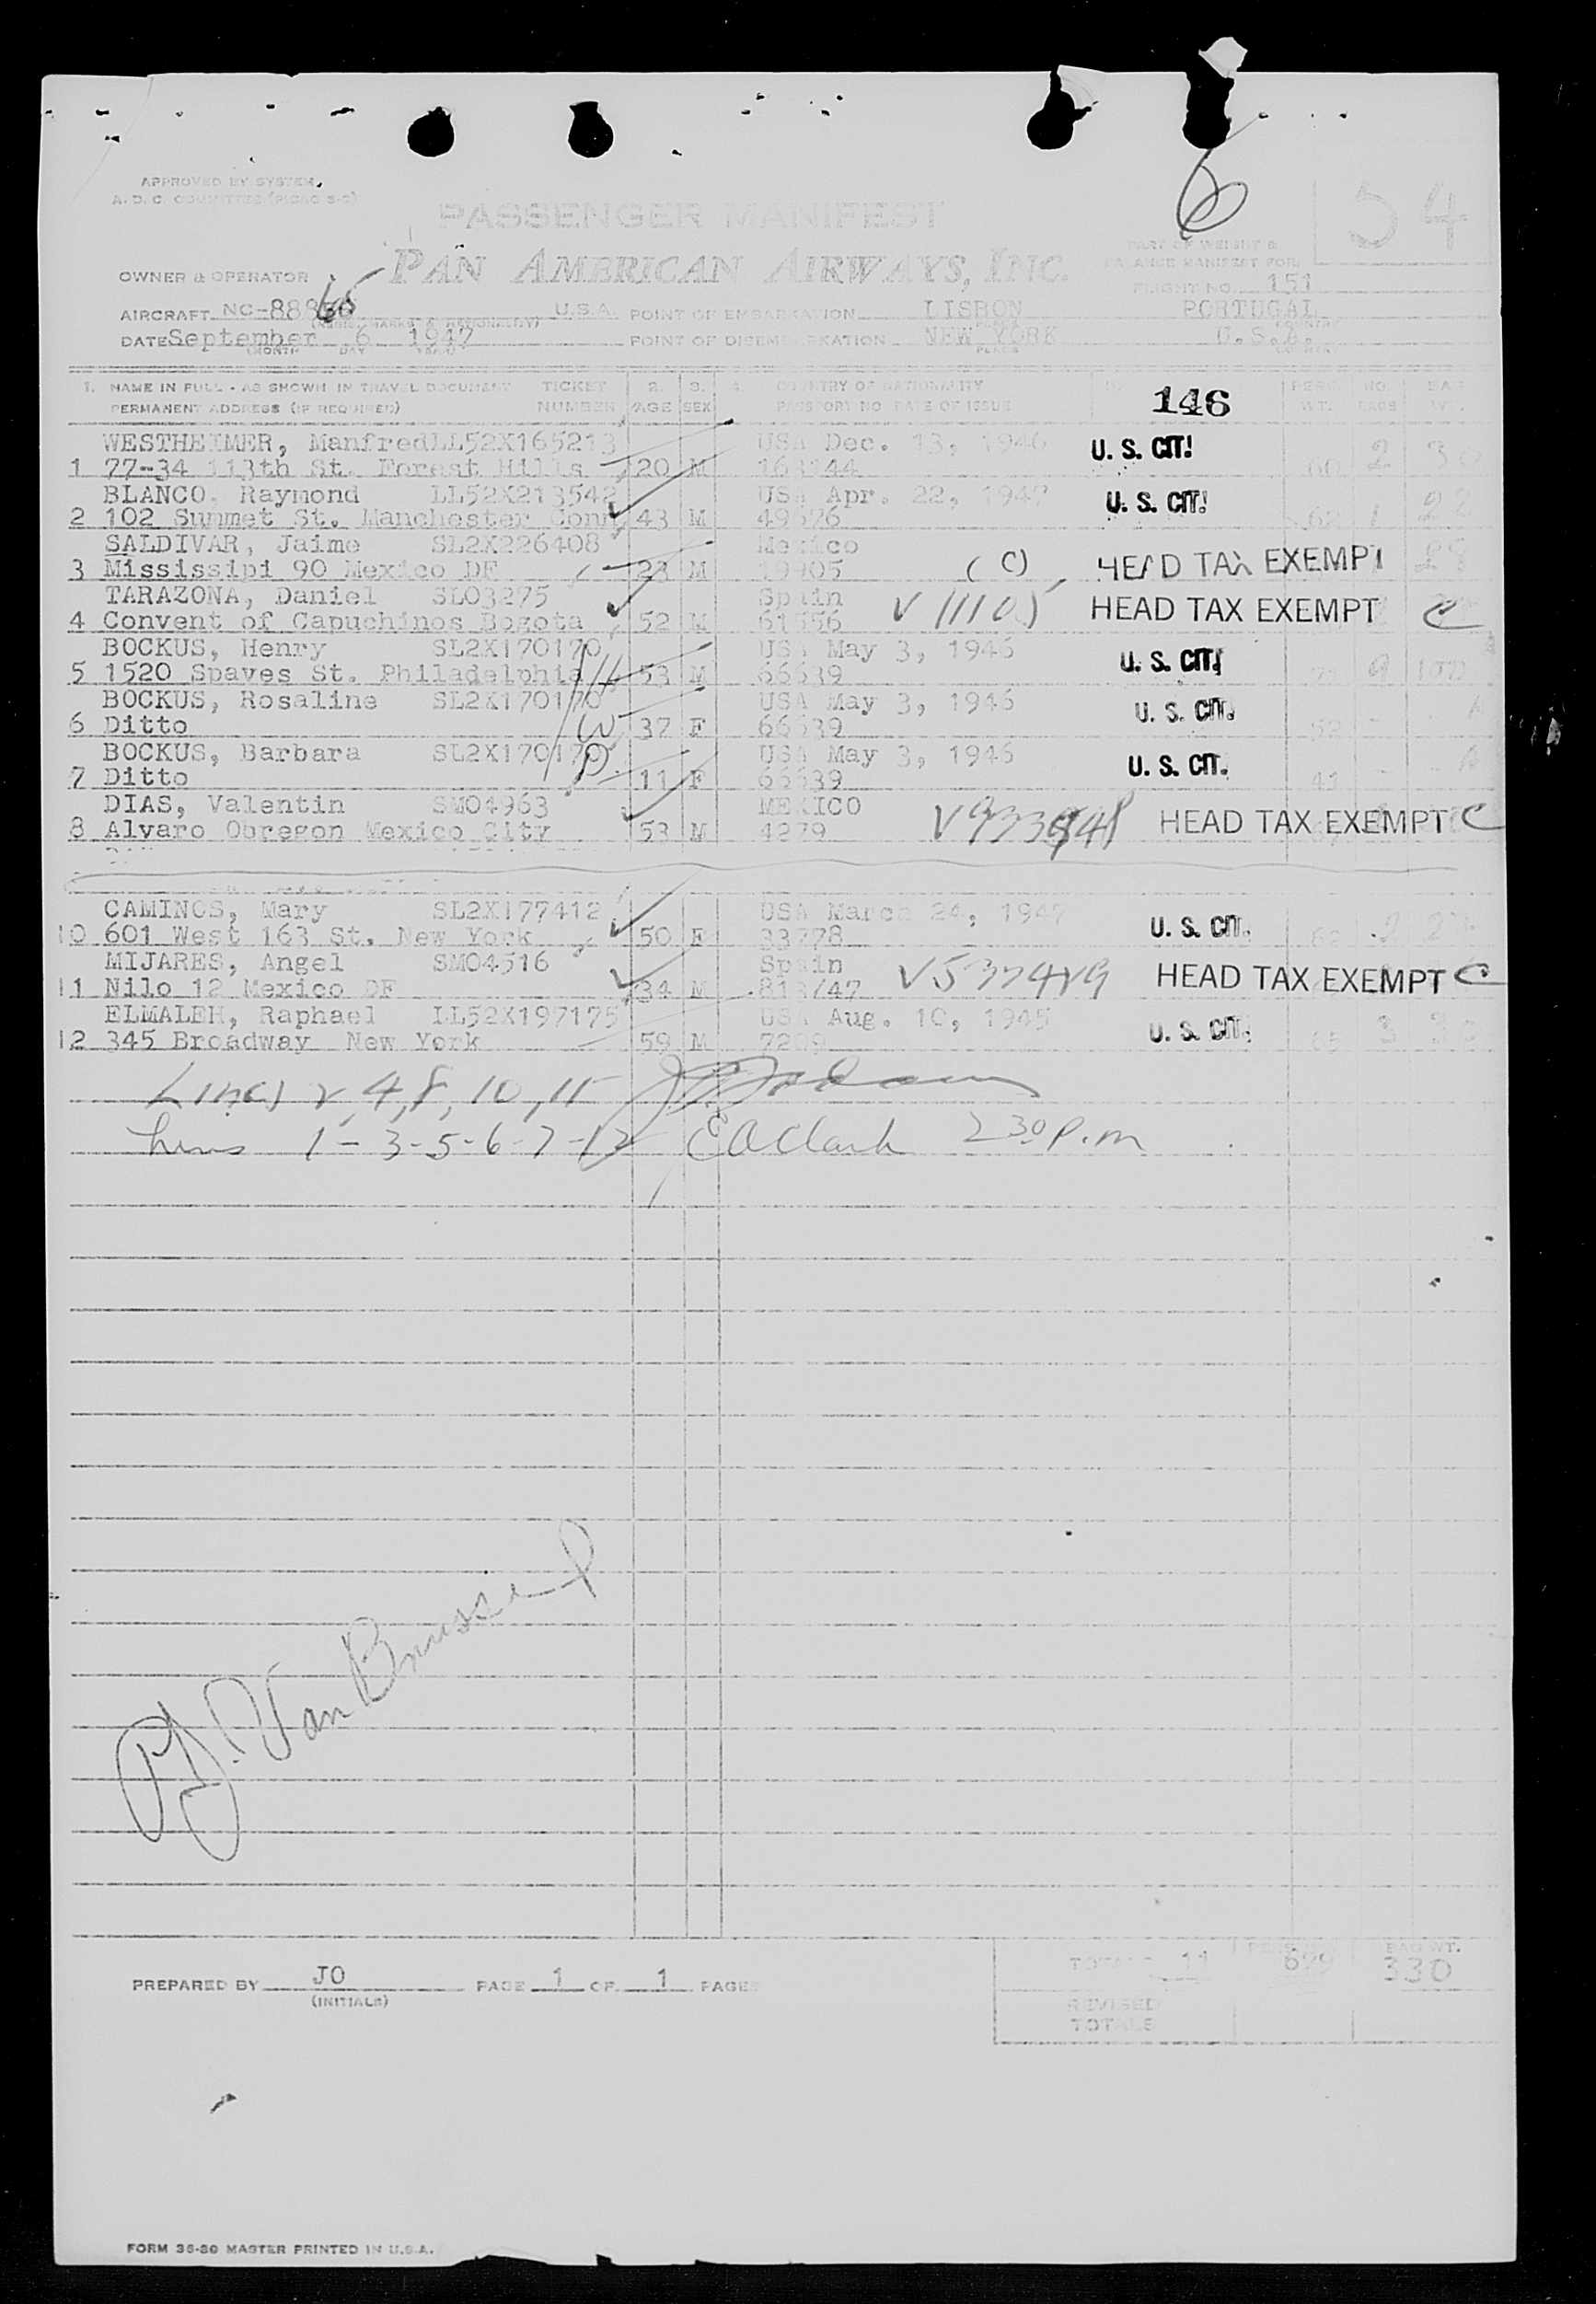 6
54
APPROVED BY SYSTEM
PASSENGER MANIFEST
PART OF WEIGHT &
BALANCE MANIFEST FOR
OWNER & OPERATOR PAN AMERICAN AIRWAYS, INC.
FLIGHT NO. 151
AIRCRAFT NC-888 U.S.A. POINT OF EMBARKATION LISBON PORTUGAL
DATE September 6 1947 POINT OF DISEMBARKATION NEW YORK U.S.A.
(MONTH DAY YEAR) PLACE COUNTRY
1. NAME IN FULL - AS SHOWN IN TRAVEL DOCUMENT TICKET 2. 3. 4. COUNTRY OF NATIONALITY PERS. NO. BAG
PERMANENT ADDRESS (IF REQUIRED) NUMBER AGE SEX PASSPORT NO. DATE OF ISSUE 146 WT. BAGS WT.
WESTHEIMER, Manfred LL52X165213 USA Dec. 13, 1946 U. S. CIT.
1 77-34 113th St. Forest Hills 20 M 163144 60 2 30
BLANCO. Raymond LL52X213542 USA Apr. 22, 1947 U. S. CIT.
2 102 Summet St. Manchester Conn 43 M 49626 1 22
SALDIVAR, Jaime SL2X226408 Mexico
3 Mississipi 90 Mexico DF 23 M 19905 (C) HEAD TAX EXEMPT 28
TARAZONA, Daniel SL03275 Spain V 11105 HEAD TAX EXEMPT C
4 Convent of Capuchinos Bogota 52 M 61556
BOCKUS, Henry SL2X170170 USA May 3, 1946 U. S. CIT.
5 1520 Spaves St. Philadelphia 53 M 66639
BOCKUS, Rosaline SL2X170170 USA May 3, 1946 U. S. CIT.
6 Ditto 37 F 66639
BOCKUS, Barbara SL2X170170 USA May 3, 1946 U. S. CIT.
7 Ditto 11 F 66639 41
DIAS, Valentin SM04963 MEXICO HEAD TAX EXEMPT C
8 Alvaro Obregon Mexico City 53 M 4279
CAMINOS, Mary SL2X177412 USA March 24, 1947 U. S. CIT.
10 601 West 163 St. New York 50 F 33778 2
MIJARES, Angel SM04516 Spain HEAD TAX EXEMPT C
11 Nilo 12 Mexico DF 34 M 813/47
ELMALEH, Raphael LL52X197175 USA Aug. 10, 1945 U. S. CIT.
12 345 Broadway New York 59 M 7209 65 3
Lines 2, 4, 8, 10, 11
Lines 1-3-5-6-7-12 E A Clark 2 30 P.m
PREPARED BY JO PAGE 1 OF 1 PAGES
(INITIALS)
TOTALS 11 699 BAG WT. 330
REVISED
TOTALS
FORM 36-80 MASTER PRINTED IN U.S.A.